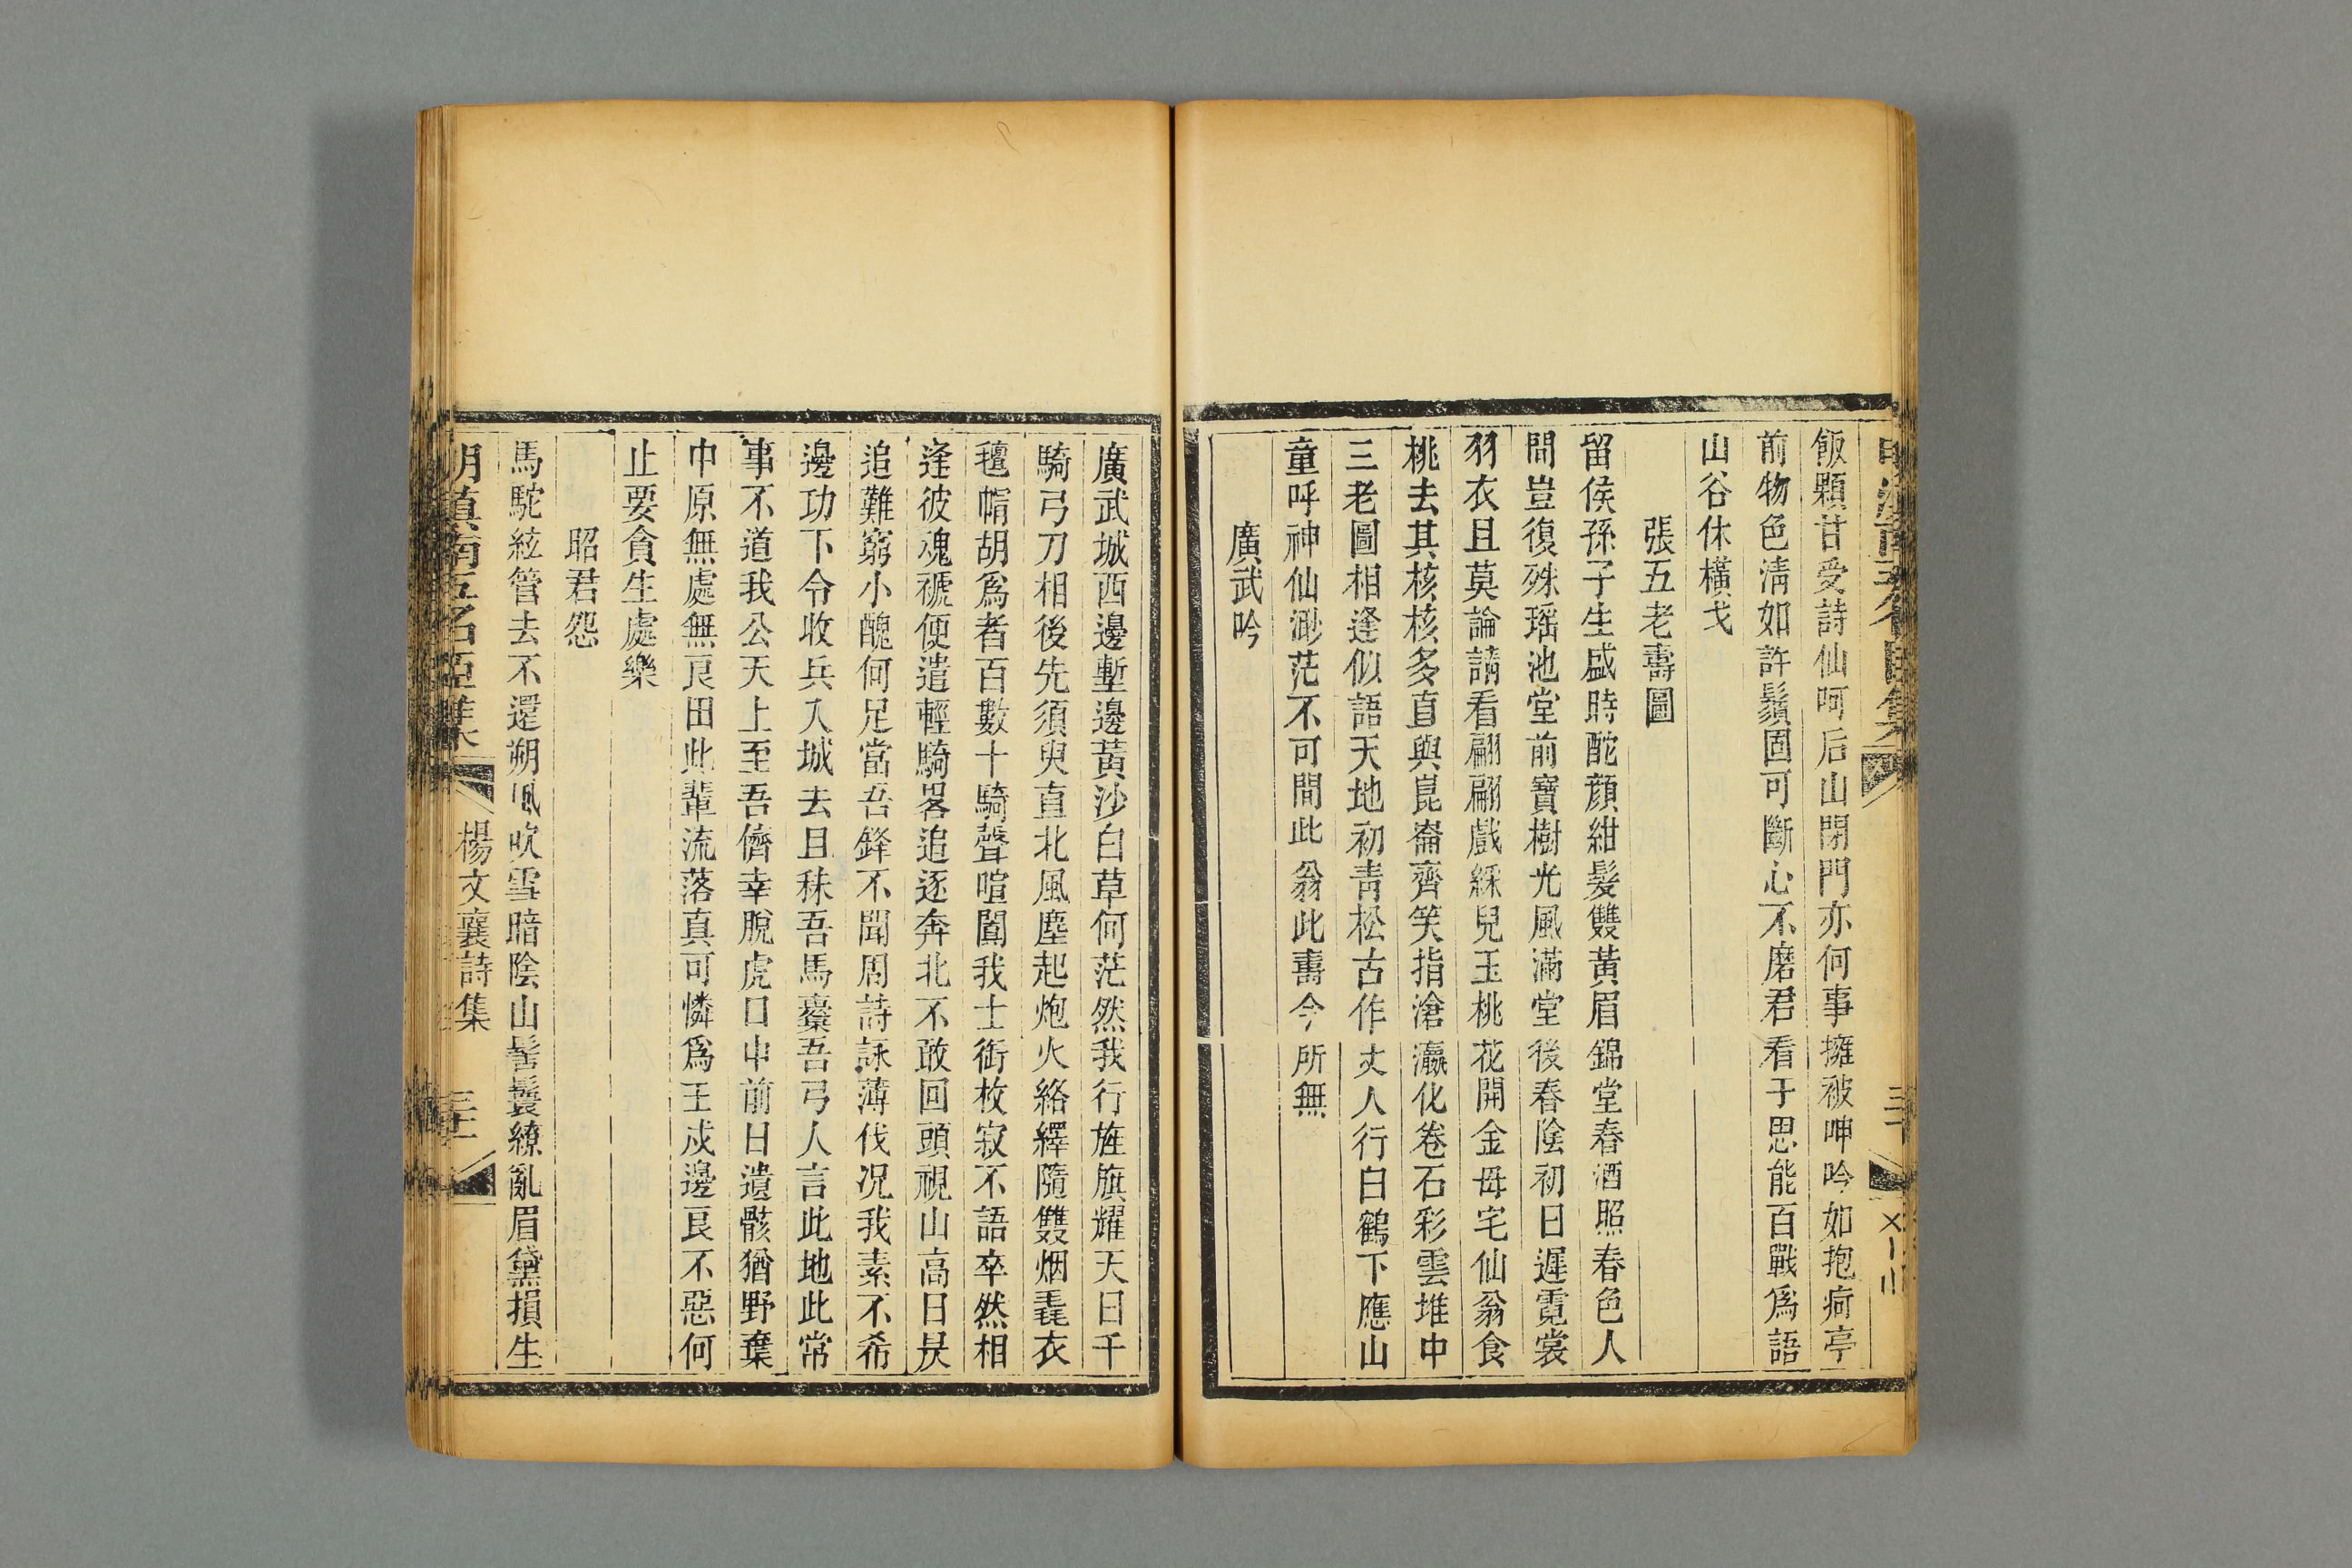 飯顆甘受詩仙呵后山閉門亦何事擁被呻吟如抱痾亭
前物色淸如許鬚固可斷心不磨君看于思能百戰爲語
山谷休橫戈
張五老壽圖
留侯孫子生盛時酡顏紺髮雙黃眉錦堂春酒照春色人
間豈復殊瑶池堂前寶樹光風滿堂後春陰初日遲霓裳
羽衣且莫論請看翩翩戲綵兒玉桃花開金母宅仙翁食
桃去其核核多直與崑崙齊笑指滄瀛化卷石彩雲堆中
三老圖相逢似語天地初靑松古作丈人行白鶴下應山
童呼神仙渺茫不可間此翁此壽今所無
廣武吟
廣武城西邊塹邊黃沙白草何茫然我行旌旗耀天日千
騎弓刀相後先須臾直北風塵起炮火絡繹隨雙烟毳衣
氊帽胡爲者百數十騎聲喧闐我士銜枚寂不語卒然相
逢彼魂褫便遣輕騎畧追逐奔北不敢回頭視山高日昃
追難窮小醜何足當吾鋒不聞周詩詠薄伐况我素不希
邊功下令收兵入城去且秣吾馬櫜吾弓人言此地此常
事不道我公天上至吾儕幸脫虎口中前日遺骸猶野棄
中原無處無良田此輩流落真可憐爲王戍邊良不惡何
止要貪生處樂
昭君怨
馬駝絃管去不還朔風吹雪暗陰山髻鬟繚亂眉黛損生
明滇南五名臣集
楊文襄詩集
三十一